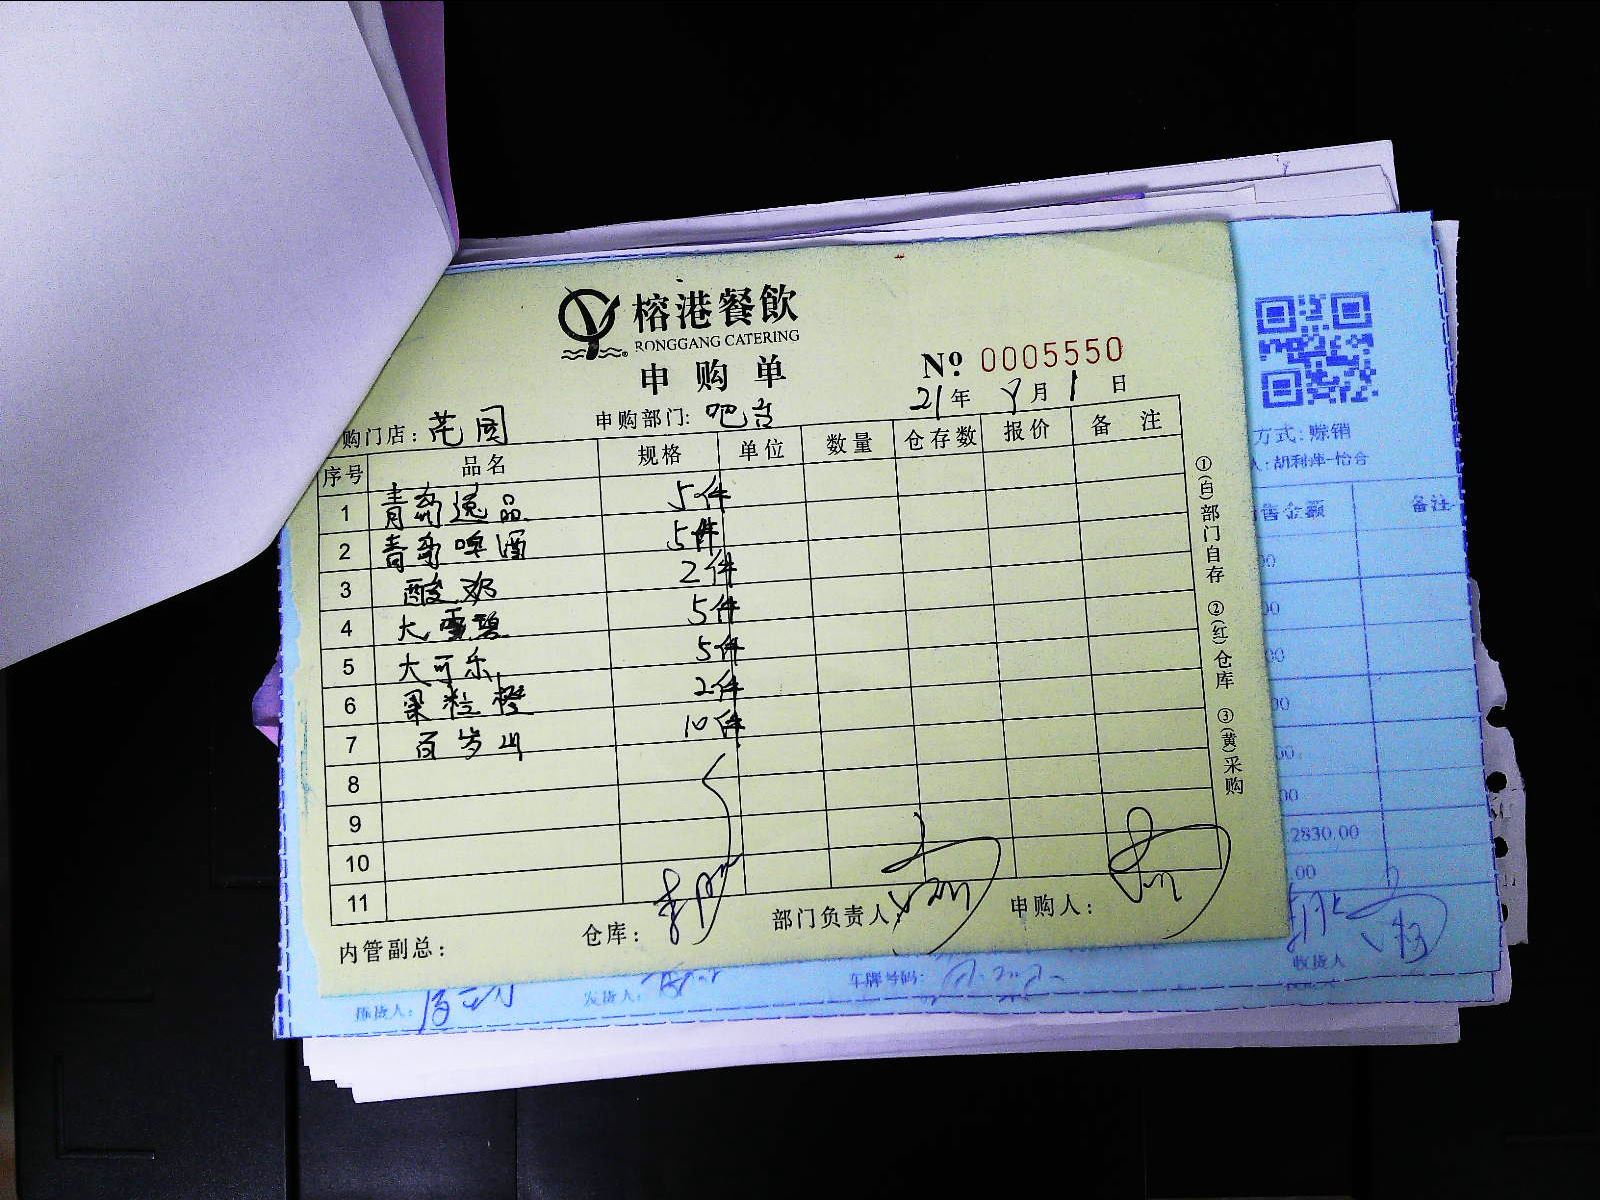 榕港餐飲
RONGGANG CATERING
申购单
№ 0005550
21年 9月 1日
购门店: 芘园
申购部门: 吧台
序号 品名 规格 单位 数量 仓存数 报价 备注
1 青岛逸品 5件
2 青岛啤酒 5件
3 酸奶 2件
4 大雪碧 5件
5 大可乐 5件
6 果粒橙 2件
7 百岁山 10件
8
9
10
11
内管副总:
仓库:
部门负责人:
申购人:
①(白)部门自存 ②(红)仓库 ③(黄)采购
方式: 赊销
售金额 备注
2830.00
.00
收货人
发货人:
车牌号码: